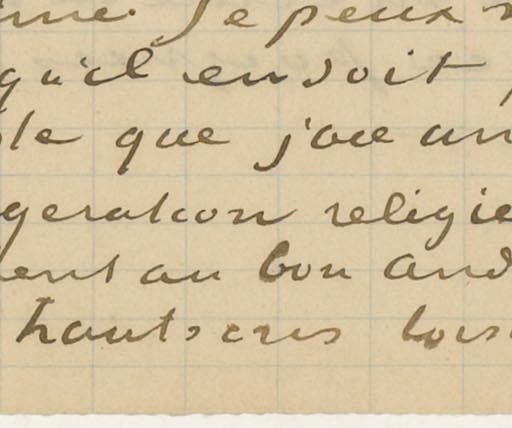 me. Je peux
qu'il en soit
le que j'aie un
geration religie
ent au bon And
hauts cris lors